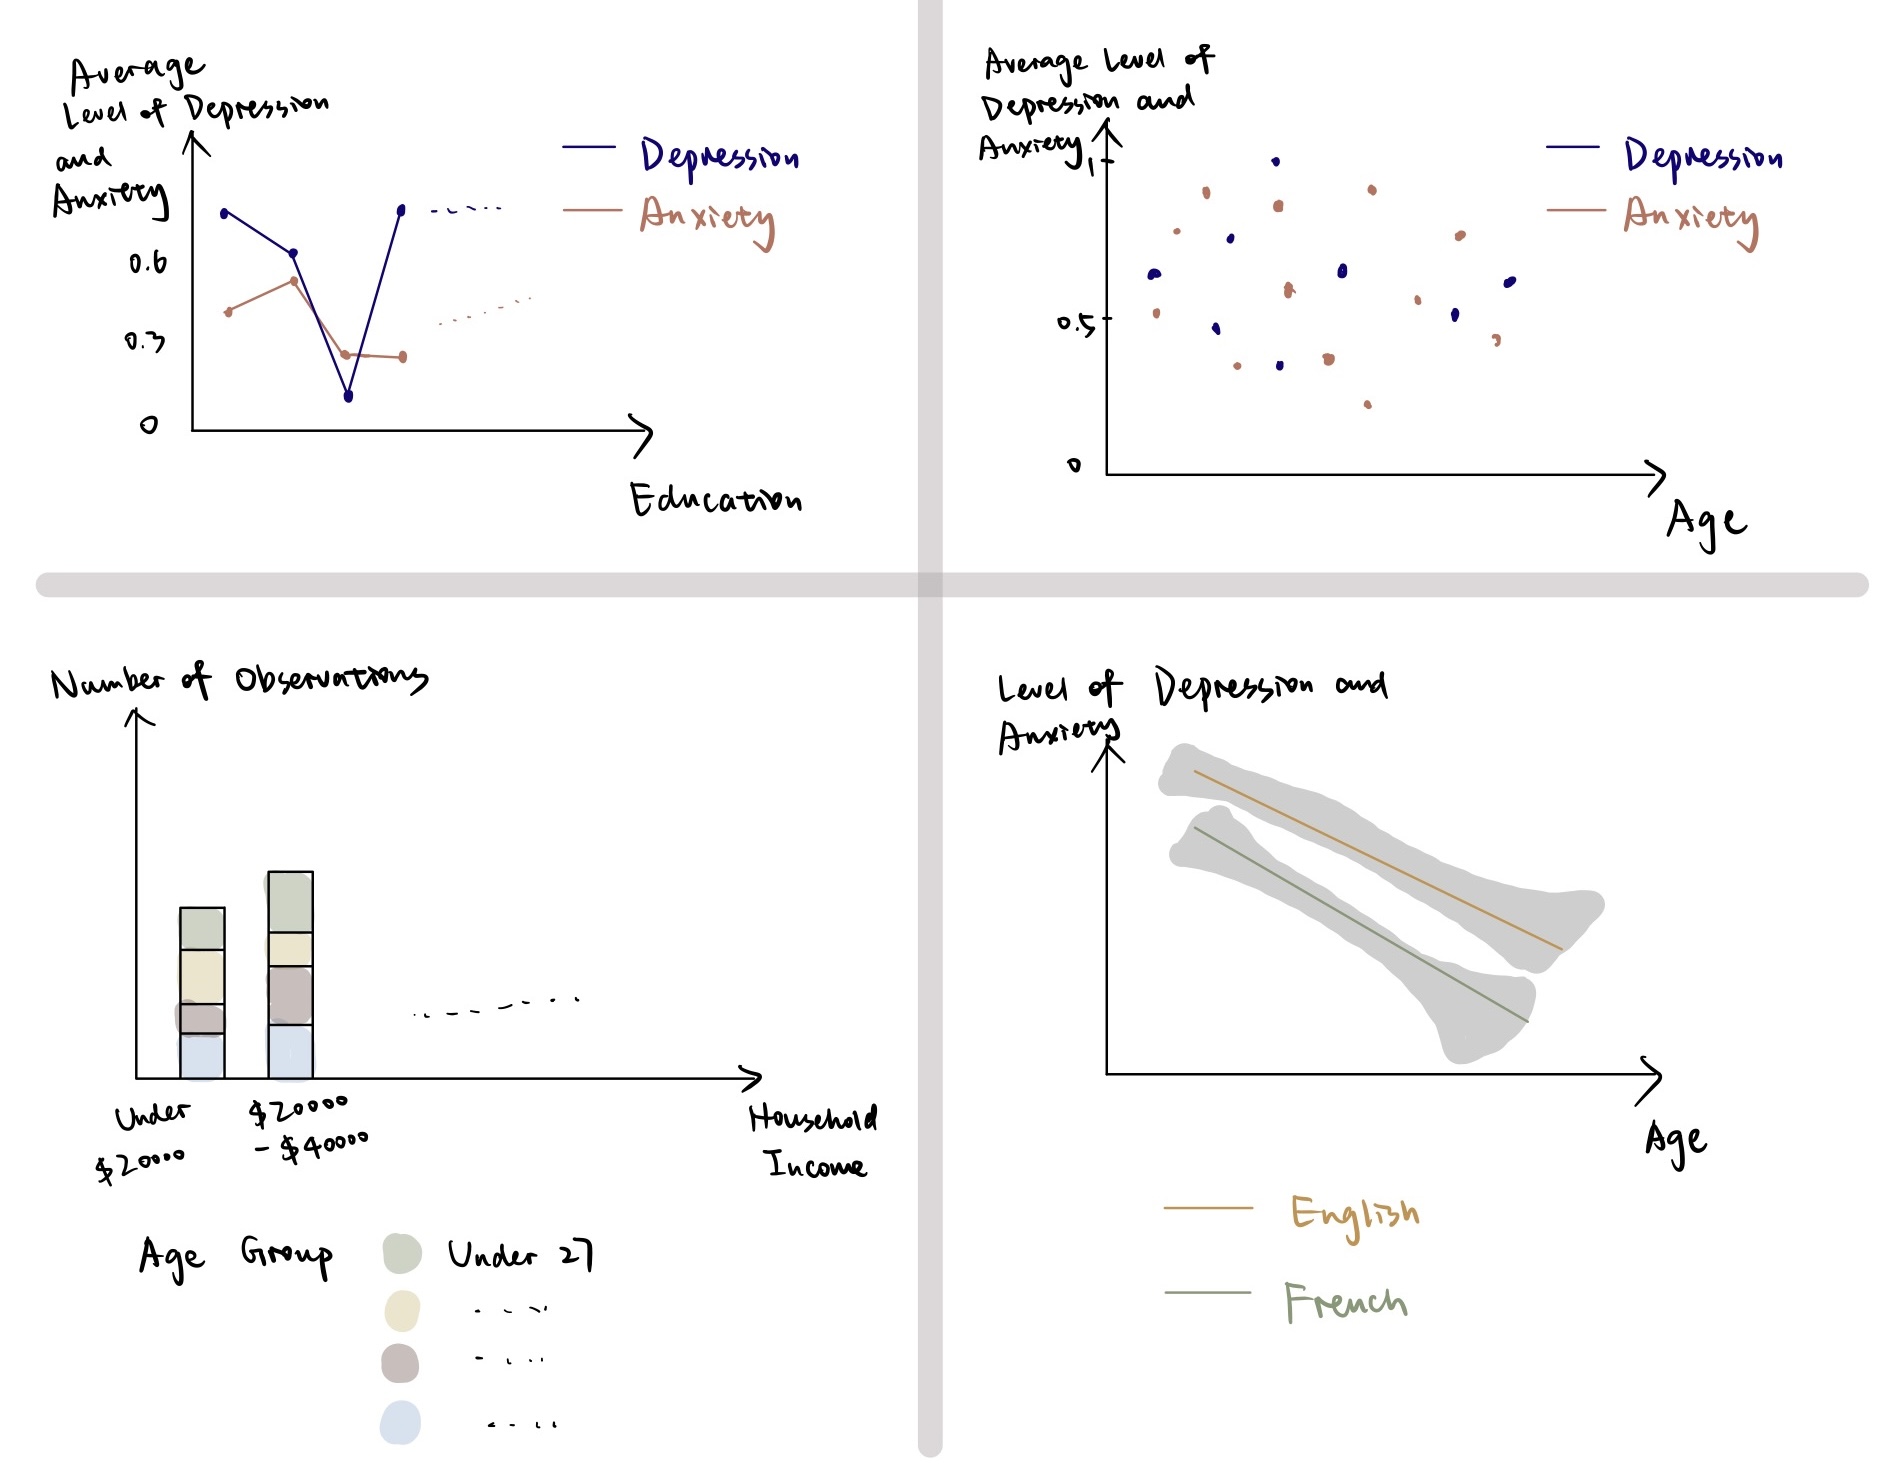 Average
Level of Depression
and
Anxiety
0.6
0.3
0
Depression
Anxiety
Education
Average Level of
Depression and
Anxiety
1
0.5
0
Depression
Anxiety
Age
Number of Observations
Under
$20000
$20000
- $40000
Household
Income
Age Group
Under 27
Level of Depression and
Anxiety
Age
English
French